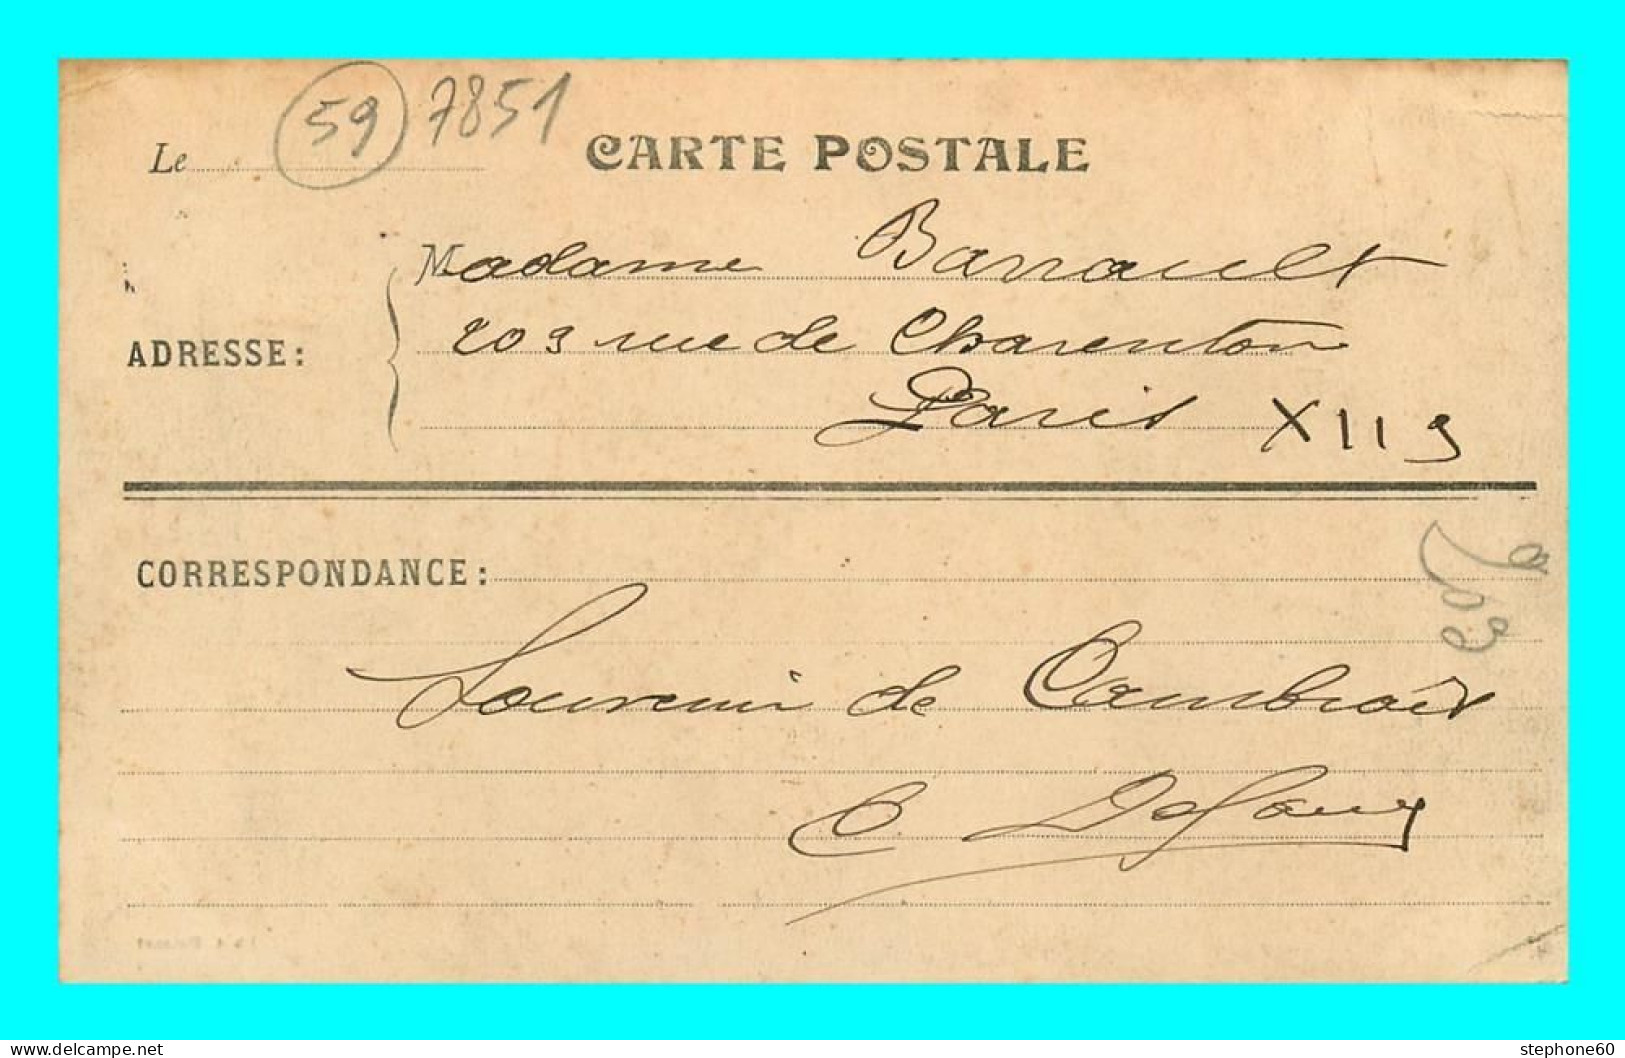 59 7851
CARTE POSTALE
Le
Madame Barrault
ADRESSE:
203 rue de Charenton
Paris XII e
CORRESPONDANCE:
203
Souvenir de Cambrai
C
www.delcampe.net
stephone60